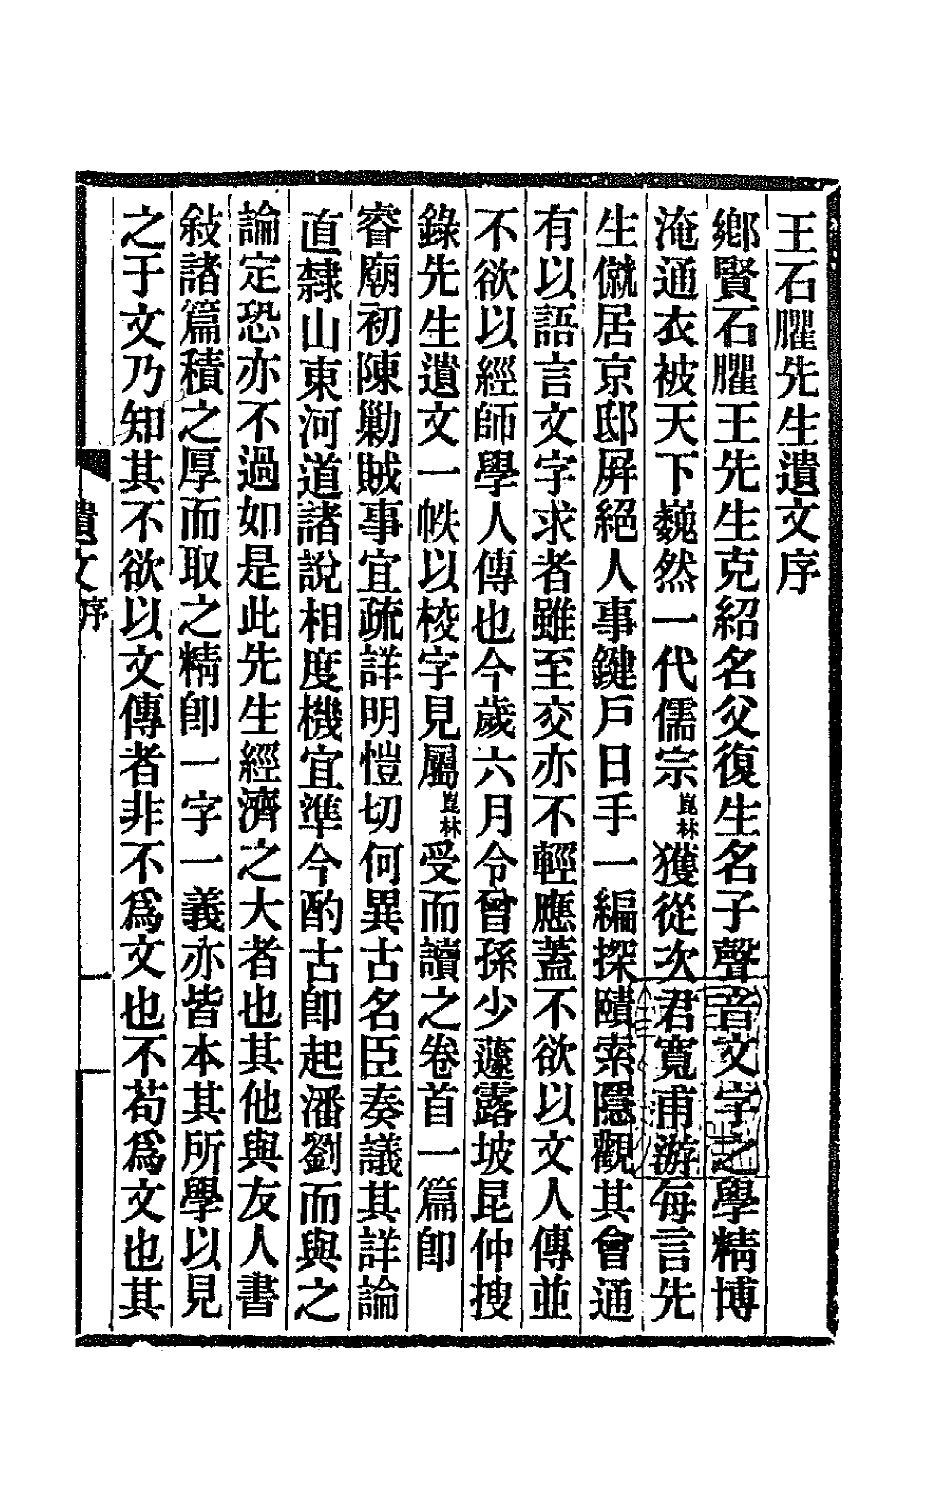 王石臞先生遺文序
鄉賢石臞王先生克紹名父復生名子聲音文字之學精博
淹通衣被天下巍然一代儒宗崑林獲從次君寬甫游每言先
生僦居京邸屏絕人事鍵戶日手一編探賾索隱觀其會通
有以語言文字求者雖至交亦不輕應蓋不欲以文人傳並
不欲以經師學人傳也今歲六月令曾孫少蘧露坡昆仲搜
錄先生遺文一帙以校字見屬崑林受而讀之卷首一篇卽
睿廟初陳勦賊事宜疏詳明愷切何異古名臣奏議其詳論
直隸山東河道諸說相度機宜準今酌古卽起潘劉而與之
論定恐亦不過如是此先生經濟之大者也其他與友人書
敍諸篇積之厚而取之精卽一字一義亦皆本其所學以見
之于文乃知其不欲以文傳者非不爲文也不苟爲文也其
遺文序